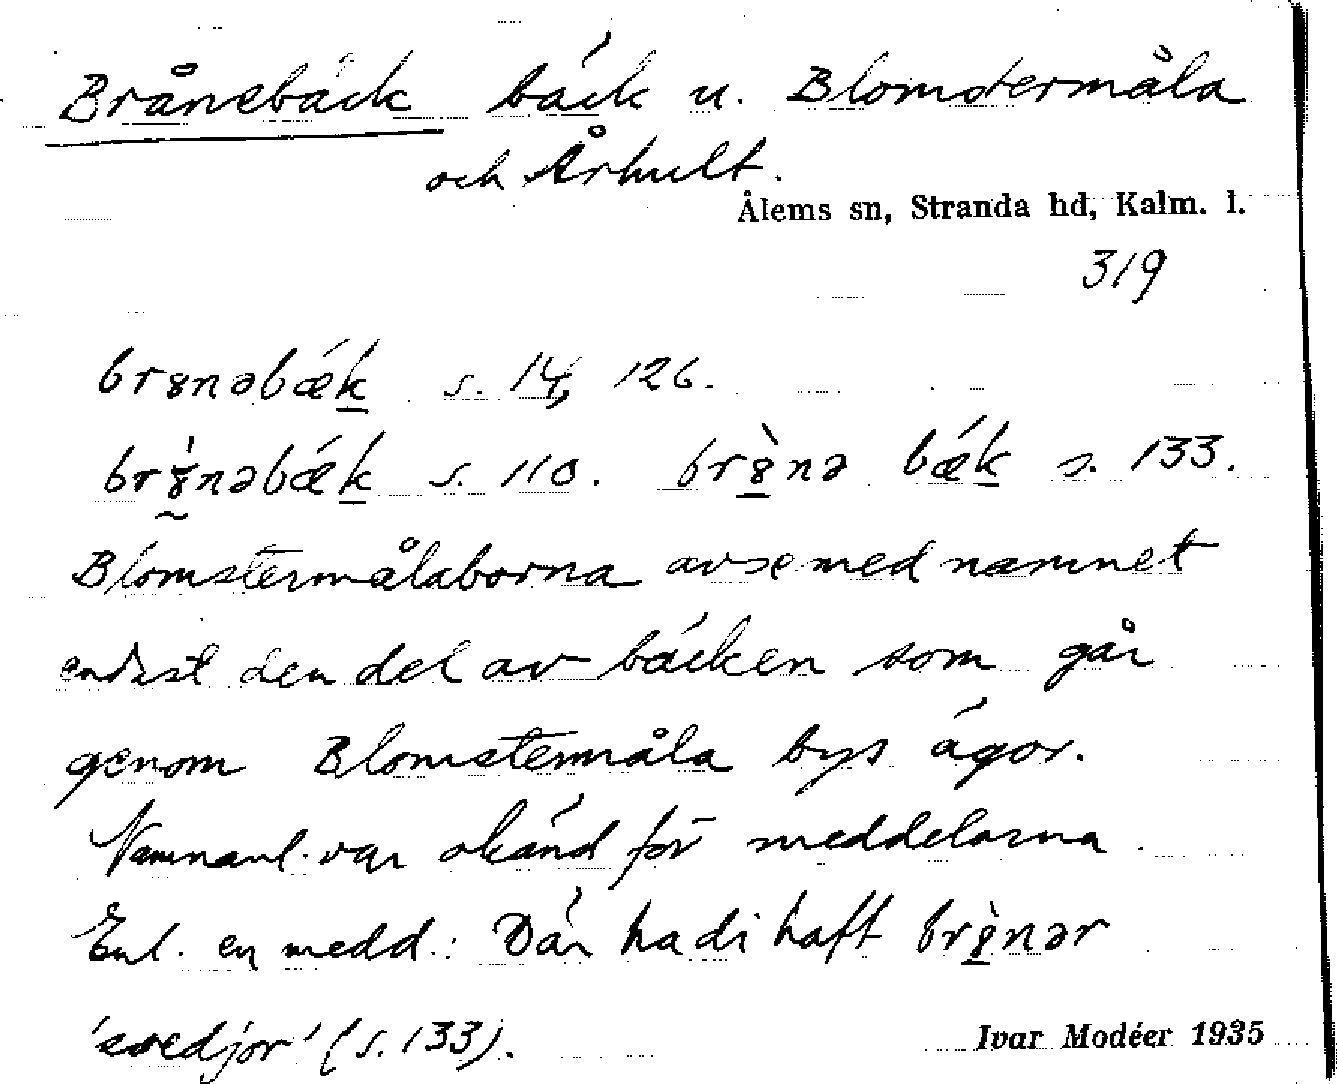 Brånebäck bäck u. Blomstermåla
och Århult.
Ålems sn, Stranda hd, Kalm. l.
319
brȣnəbǽk s. 14, 126.
brȣ̀nəbǽk s. 110. brȣ̀nə bǽk s. 133.
Blomstermålaborna avse med namnet
endast den del av bäcken som går
genom Blomstermåla bys ägor.
Namnanl. var okänd för meddelarna.
Enl. en medd.: Där ha di haft brȣ̀nər
'svedjor' (s. 133).
Ivar Modéer 1935